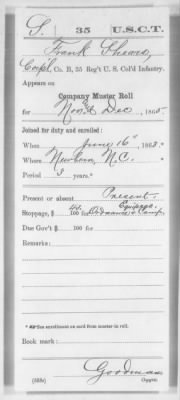 S. | 35 | U.S.C.T.
Frank Sheard,
Corpl, Co. B, 35 Reg't U. S. Col'd Infantry.
Appears on
Company Muster Roll
for Nov & Dec, 1865.
Joined for duty and enrolled:
When June 16, 1863.
Where Newbern, N.C.
Period 3 years.*
Present or absent Present.
Stoppage, $ 100 for Ordnance & Camp Equipage.
Due Gov't $ 100 for
Remarks:
* See enrollment on card from muster-in roll.
Book mark:
Goodman
(858c) Copyist.